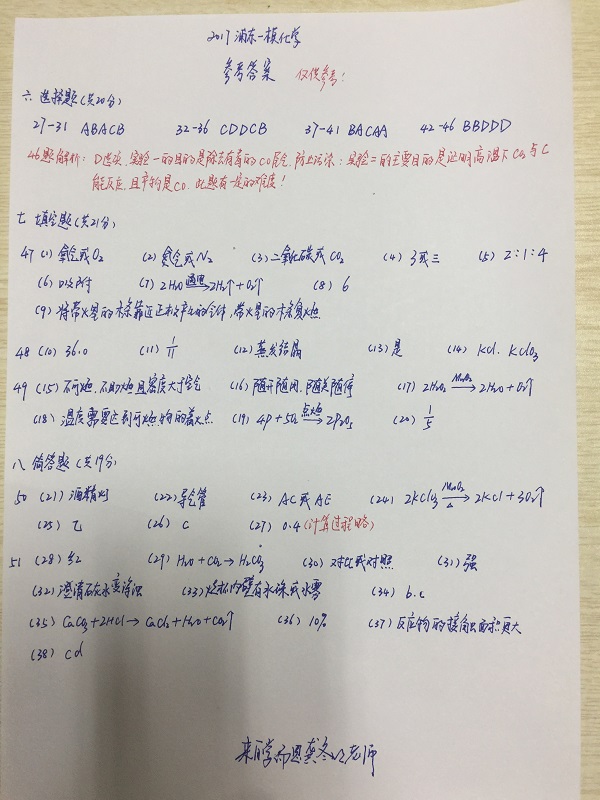 2017浦东一模化学
参考答案 仅供参考!
六 选择题(共20分)
27-31 ABACB 32-36 CDDCB 37-41 BACAA 42-46 BBDDD
46题解析: D选项,实验一的目的是除去有毒的CO尾气,防止污染;实验二的主要目的是证明高温下CO₂与C
能反应,且产物是CO.此题有一定的难度!
七 填空题(共21分)
47 (1) 氧气或O₂ (2) 氮气或N₂ (3) 二氧化碳或CO₂ (4) 3或三 (5) 2:1:4
(6) 吸附 (7) 2H₂O 通电→ 2H₂↑+O₂↑ (8) 6
(9) 将带火星的木条靠近正极产生的气体,带火星的木条复燃.
48 (10) 36.0 (11) 1/11 (12) 蒸发结晶 (13) 是 (14) KCl、KClO₃
49 (15) 不可燃,不助燃且密度大于空气 (16) 随开随用,随关随停 (17) 2H₂O₂ MnO₂→ 2H₂O+O₂↑
(18) 温度需要达到可燃物的着火点 (19) 4P+5O₂ 点燃→ 2P₂O₅ (20) 1/5
八 简答题(共19分)
50 (21) 酒精灯 (22) 导气管 (23) AC或AE (24) 2KClO₃ MnO₂→△ 2KCl+3O₂↑
(25) 乙 (26) C (27) 0.4(计算过程略)
51 (28) 红 (29) H₂O+CO₂→H₂CO₃ (30) 对比或对照 (31) 强
(32) 澄清石灰水变浑浊 (33) 烧杯内壁有水珠或水雾 (34) b.c
(35) CaCO₃+2HCl→CaCl₂+H₂O+CO₂↑ (36) 10% (37) 反应物的接触面积更大
(38) cd
来自学而思龚冬 老师